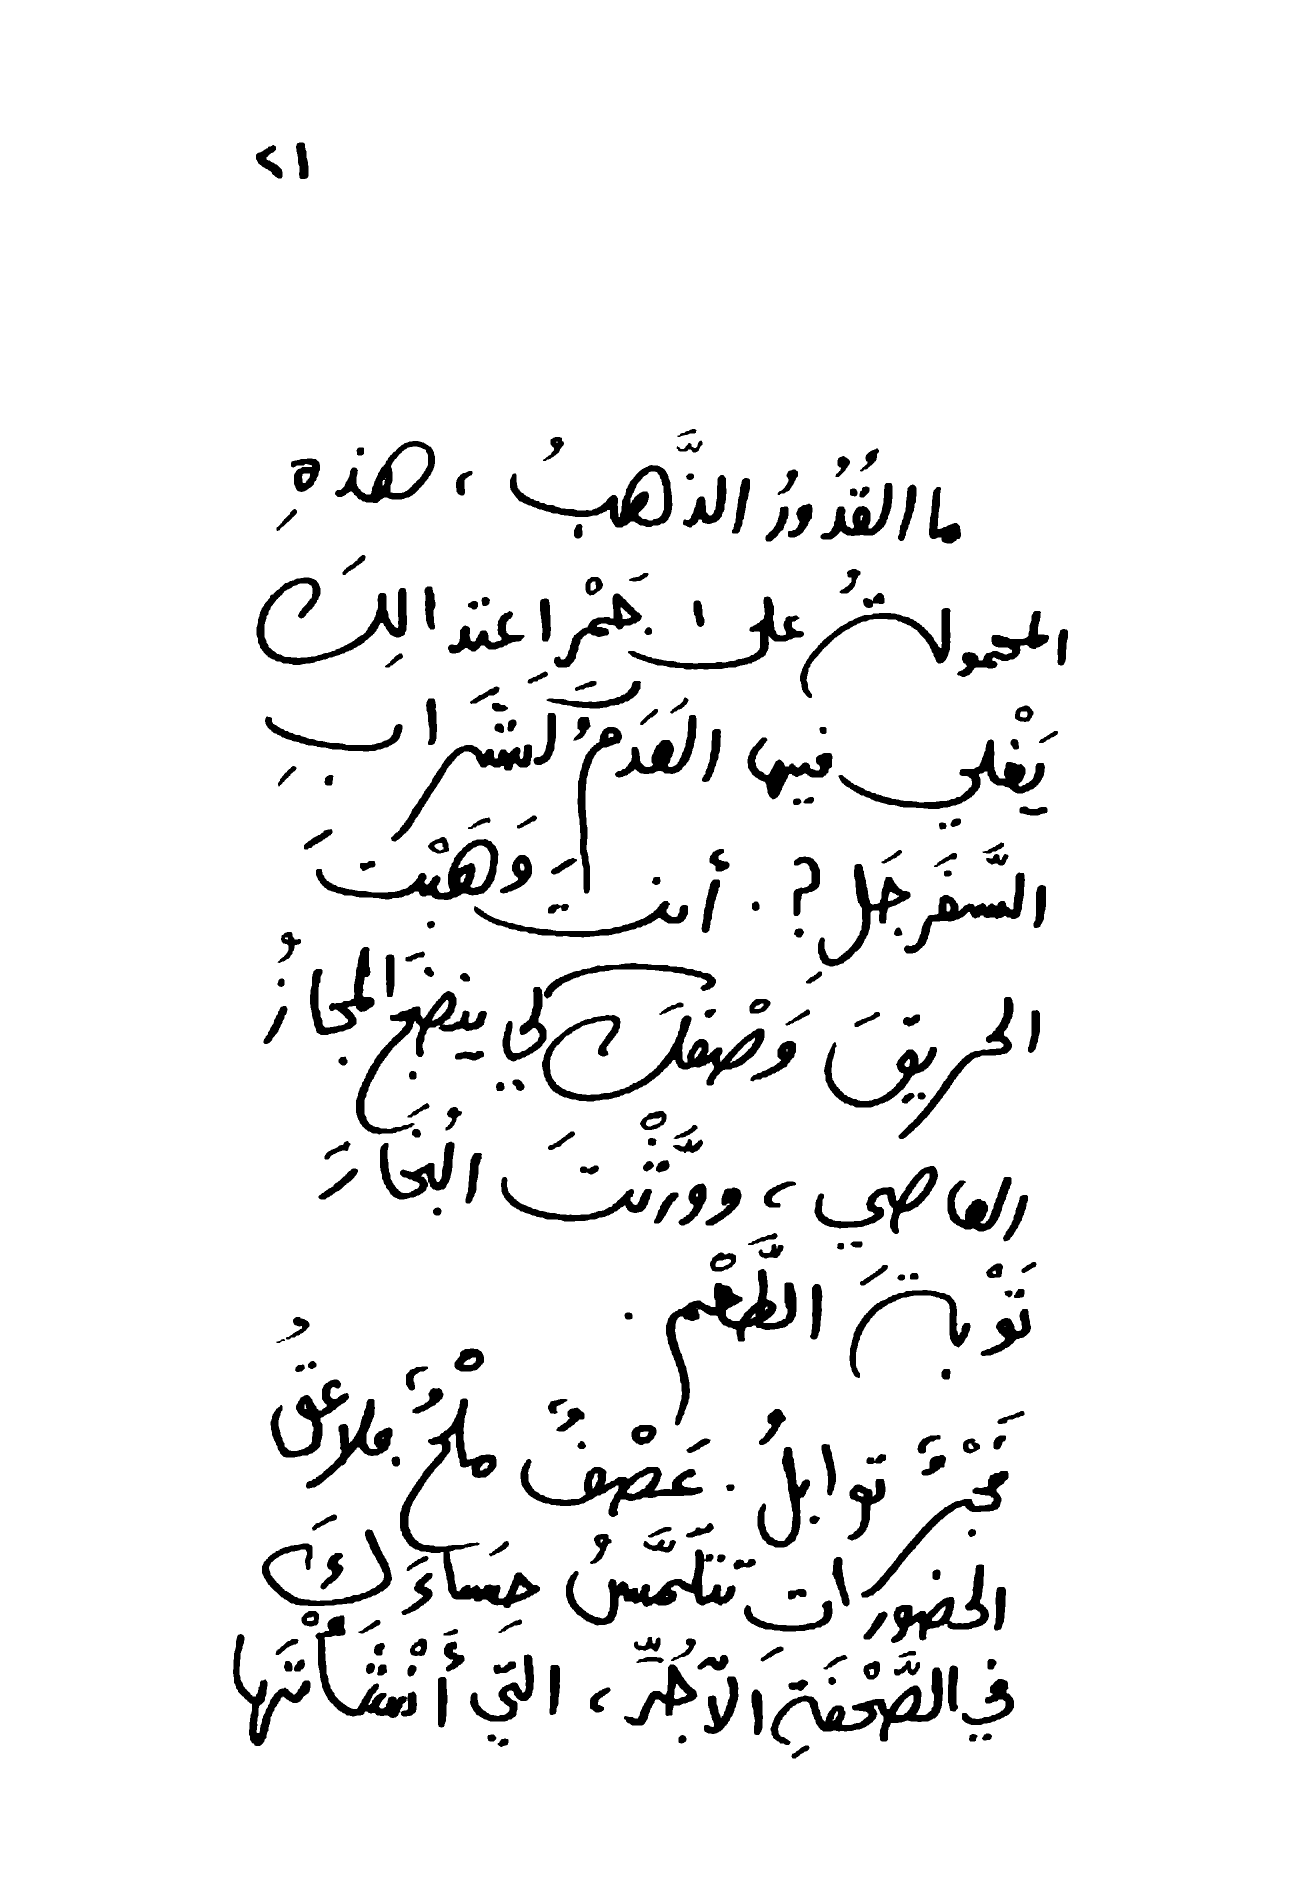 ٢١
ما القُدُورُ الذَّهبُ ، هذهِ
المحمولةُ على جَمْرِ اعتدالِكَ
يَغْلي فيها العَدَمُ كَشَرابِ
السَّفَرجَلِ ؟ . أنتَ وَهَبْتَ
الحريقَ وَصْفَكَ كي ينضجَ المجازُ
العاصي ، وورَّثْتَ البُخَارَ
تَوْبةَ الطَّعْمِ .
خَبْزٌ توابلُ . عَصْفٌ ملْحٌ . ملاعقُ
الخضورات تتلَمَّسُ حَساءَكَ
في الصَّحْفَةِ الآجُرِّ ، التي أَنْشَأْتَها